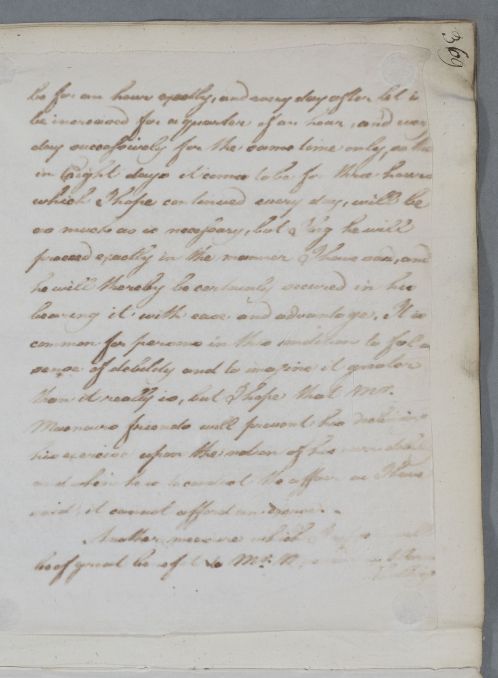 369
be for an hour exactly, and every day after let it
be increased for a quarter of an hour, and every
day successively for the same time only, so that
in Eight days it comes to be for three hours
which I hope continued every day, will be
as much as is necessary, but I beg he will
proceed exactly in the manner I have said, and
he will thereby be certainly secured in his
bearing it with ease and advantage. It is
common for persons in this condition to feel a
sense of debility and to imagine it greater
than it really is, but I hope that Mr.
friends will prevent his declining
his exercise upon the notion of his
and when he is the affair as I have
said it cannot afford
Another measure which I
be of great benefit to Mr. M